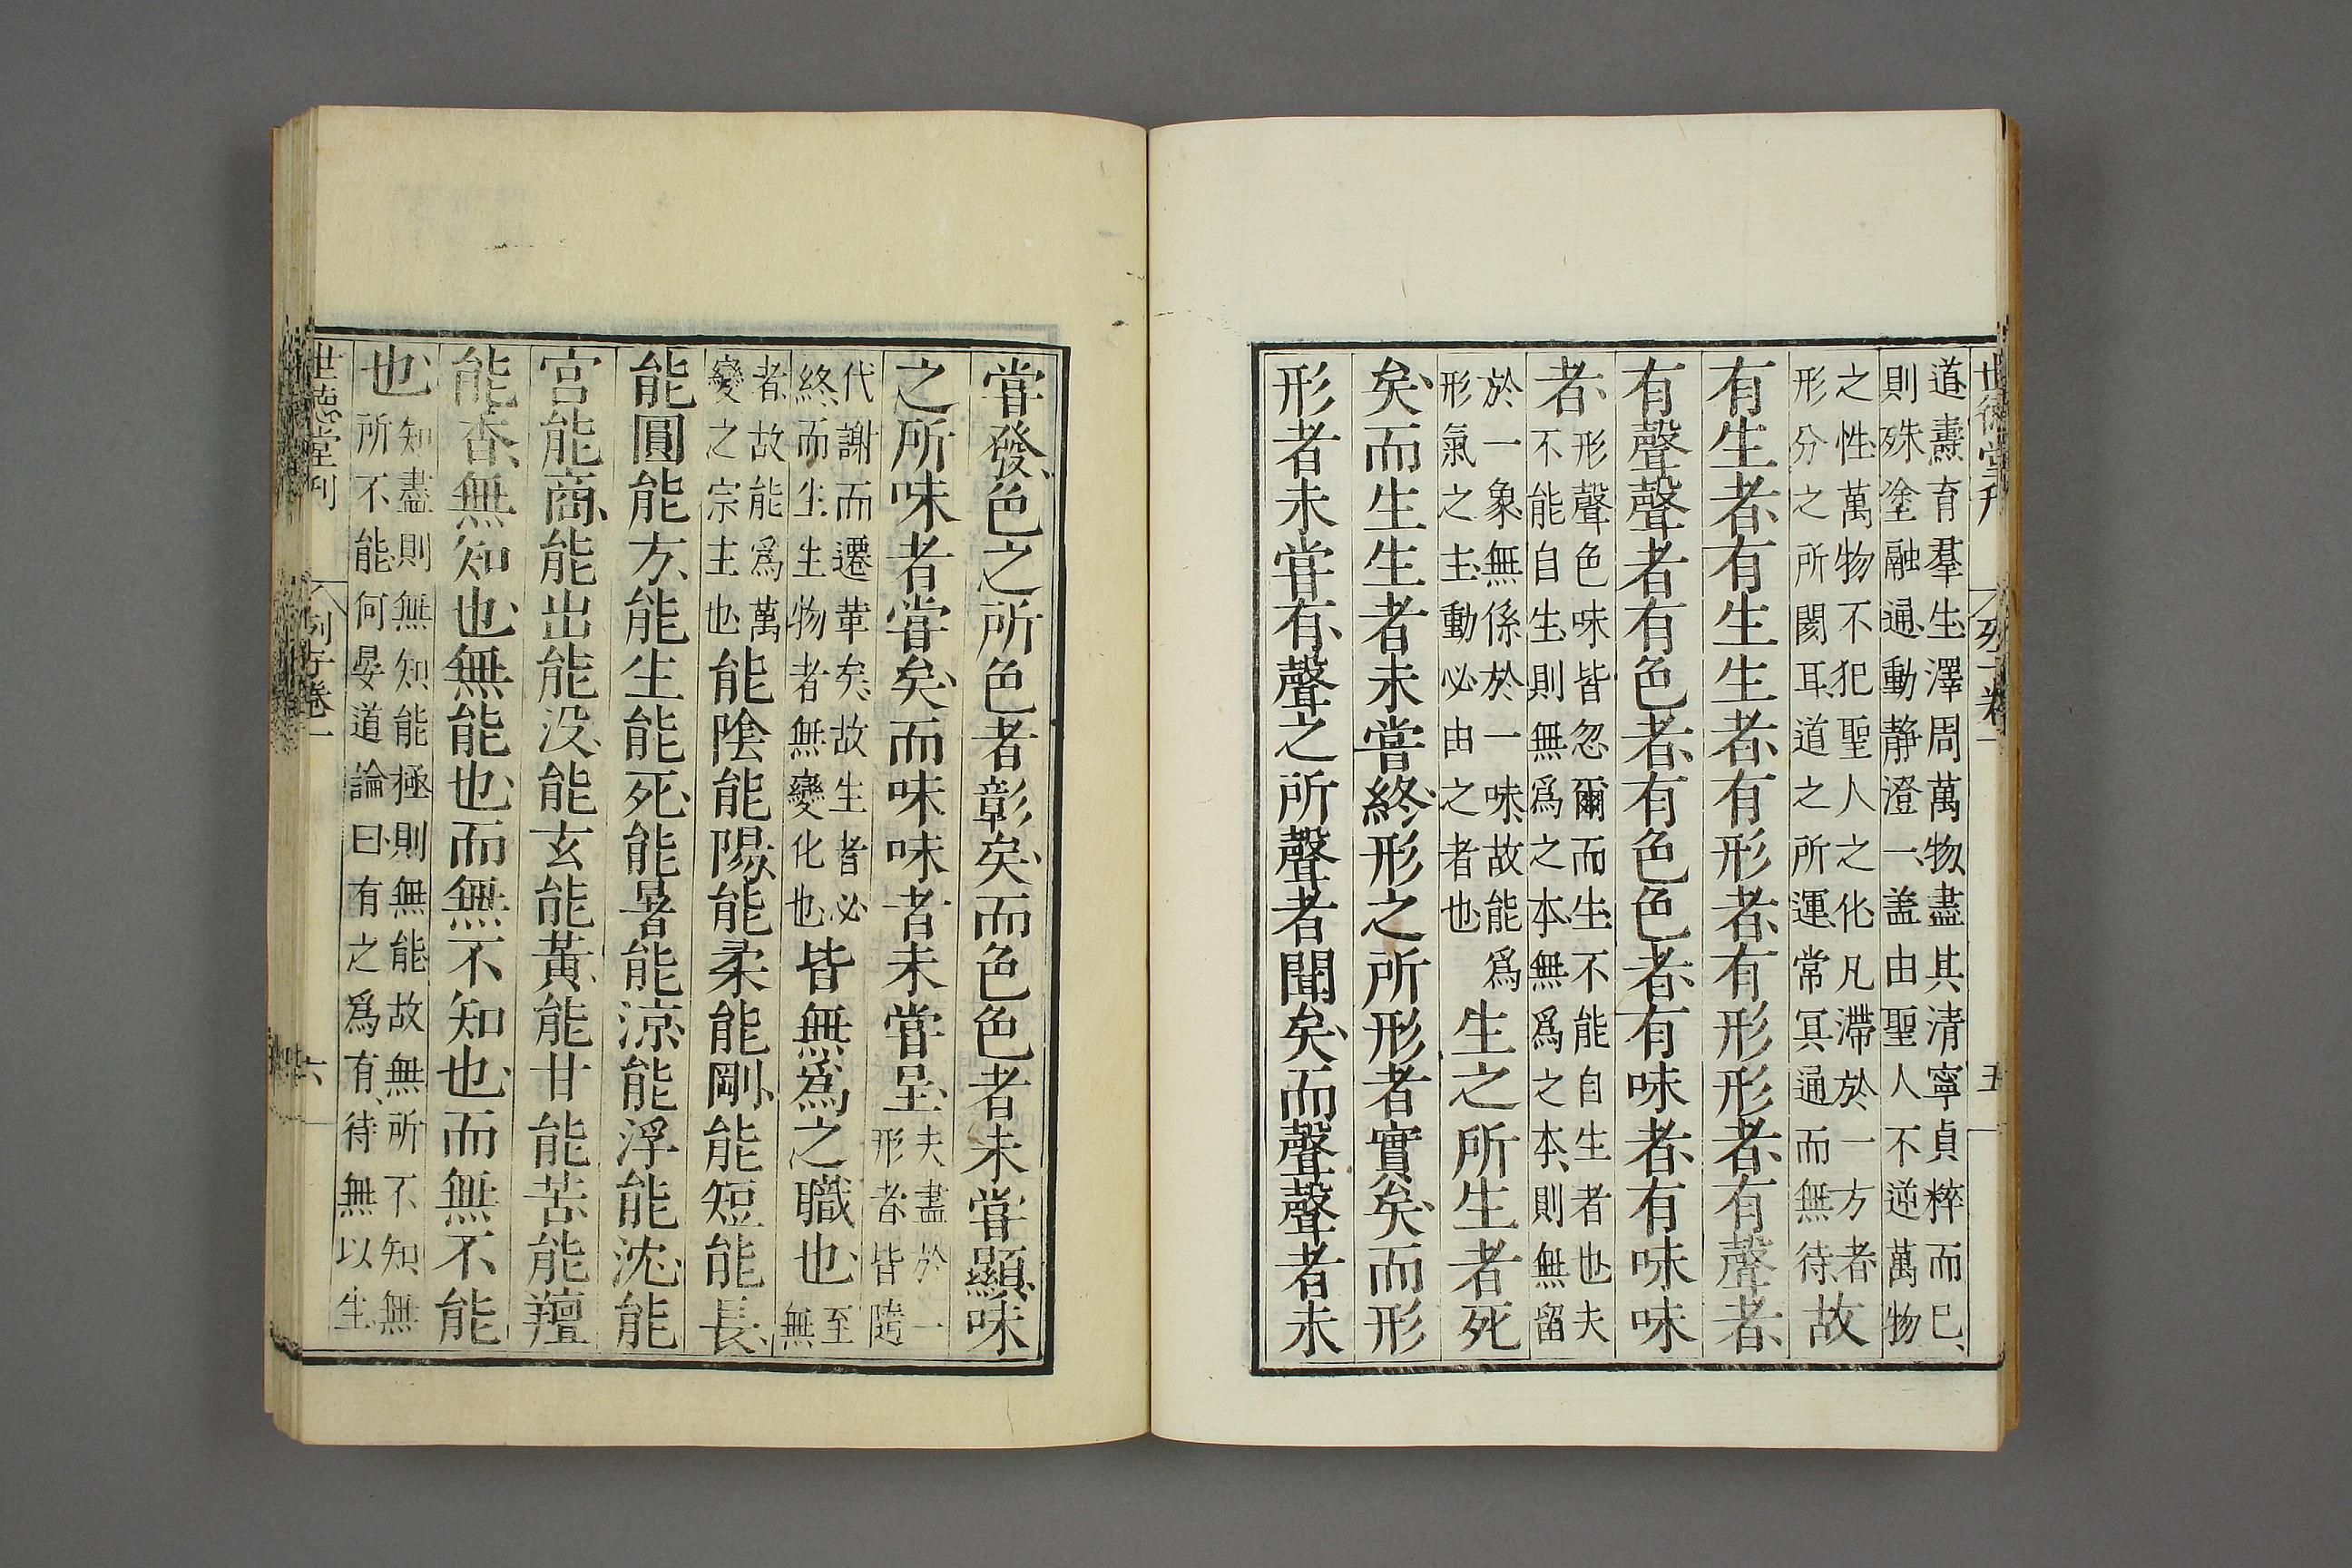 世德堂刊 列子卷一 五
道燾育羣生、澤周萬物、盡其清寧貞粹而已、
則殊塗融通、動靜澄一、盖由聖人不逆萬物
之性、萬物不犯聖人之化、凡滯於一方者、
形分之所閡耳、道之所運、常冥通而無待、故
有生者、有生生者、有形者、有形形者、有聲者、
有聲聲者、有色者、有色色者、有味者、有味味
者、形聲色味皆忽爾而生、不能自生者也、夫
不能自生、則無爲之本、無爲之本、則無留
於一象、無係於一味、故能爲
形氣之主、動必由之者也、生之所生者死
矣、而生生者未嘗終、形之所形者實矣、而形
形者未嘗有、聲之所聲者聞矣、而聲聲者未
嘗發、色之所色者彰矣、而色色者未嘗顯、味
之所味者嘗矣、而味味者未嘗呈、夫盡於一
形者、皆隨
代謝而遷革矣、故生者必
終、而生生物者無變化也、皆無爲之職也、至
無
者、故能爲萬
變之宗主也、能陰能陽、能柔能剛、能短能長、
能圓能方、能生能死、能暑能涼、能浮能沈、能
宮能商、能出能没、能玄能黃、能甘能苦、能羶
能香、無知也、無能也、而無不知也、而無不能
也、知盡則無知、能極則無能、故無所不知、無
所不能、何晏道論曰、有之爲有、待無以生、
世德堂刊 列子卷一 六